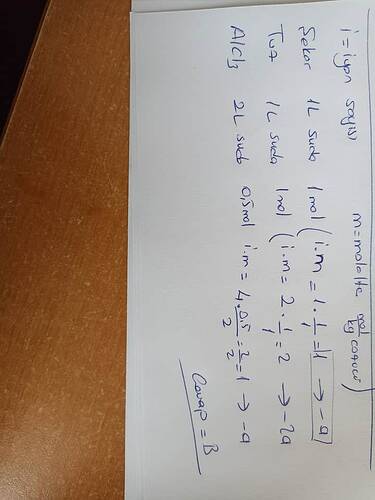 i = iyon sayısı m = molalite (mol/kg çözücü)
Şeker 1L suda 1 mol i.m = 1 . 1/1 = 1 → -a
Tuz 1L suda 1 mol i.m = 2 . 1/1 = 2 → -2a
AlCl3 2L suda 0,5 mol i.m = 4 . 0,5/2 = 2/2 = 1 → -a
Cevap = B